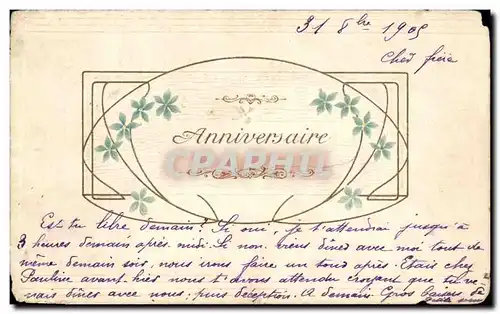 31 8bre 1905
Cher frère
Anniversaire
CPAPHIL
Est tu libre demain? Si oui, je t'attendrai jusqu'à
3 heures demain après midi. Si non viens dîner avec moi tout de
même demain soir, nous irons faire un tour après. Etais chez
Pauline avant hier nous t'avons attendu croyant que tu ve
nais dîner avec nous; puis déception. A demain. Gros baiser de
petite